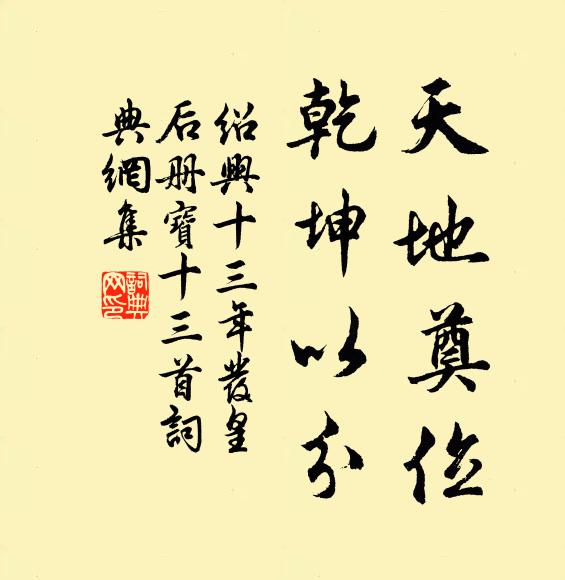 天地奠位
乾坤以分
紹興十三年發皇
后册寶十三首詞
典網集
詞典網印